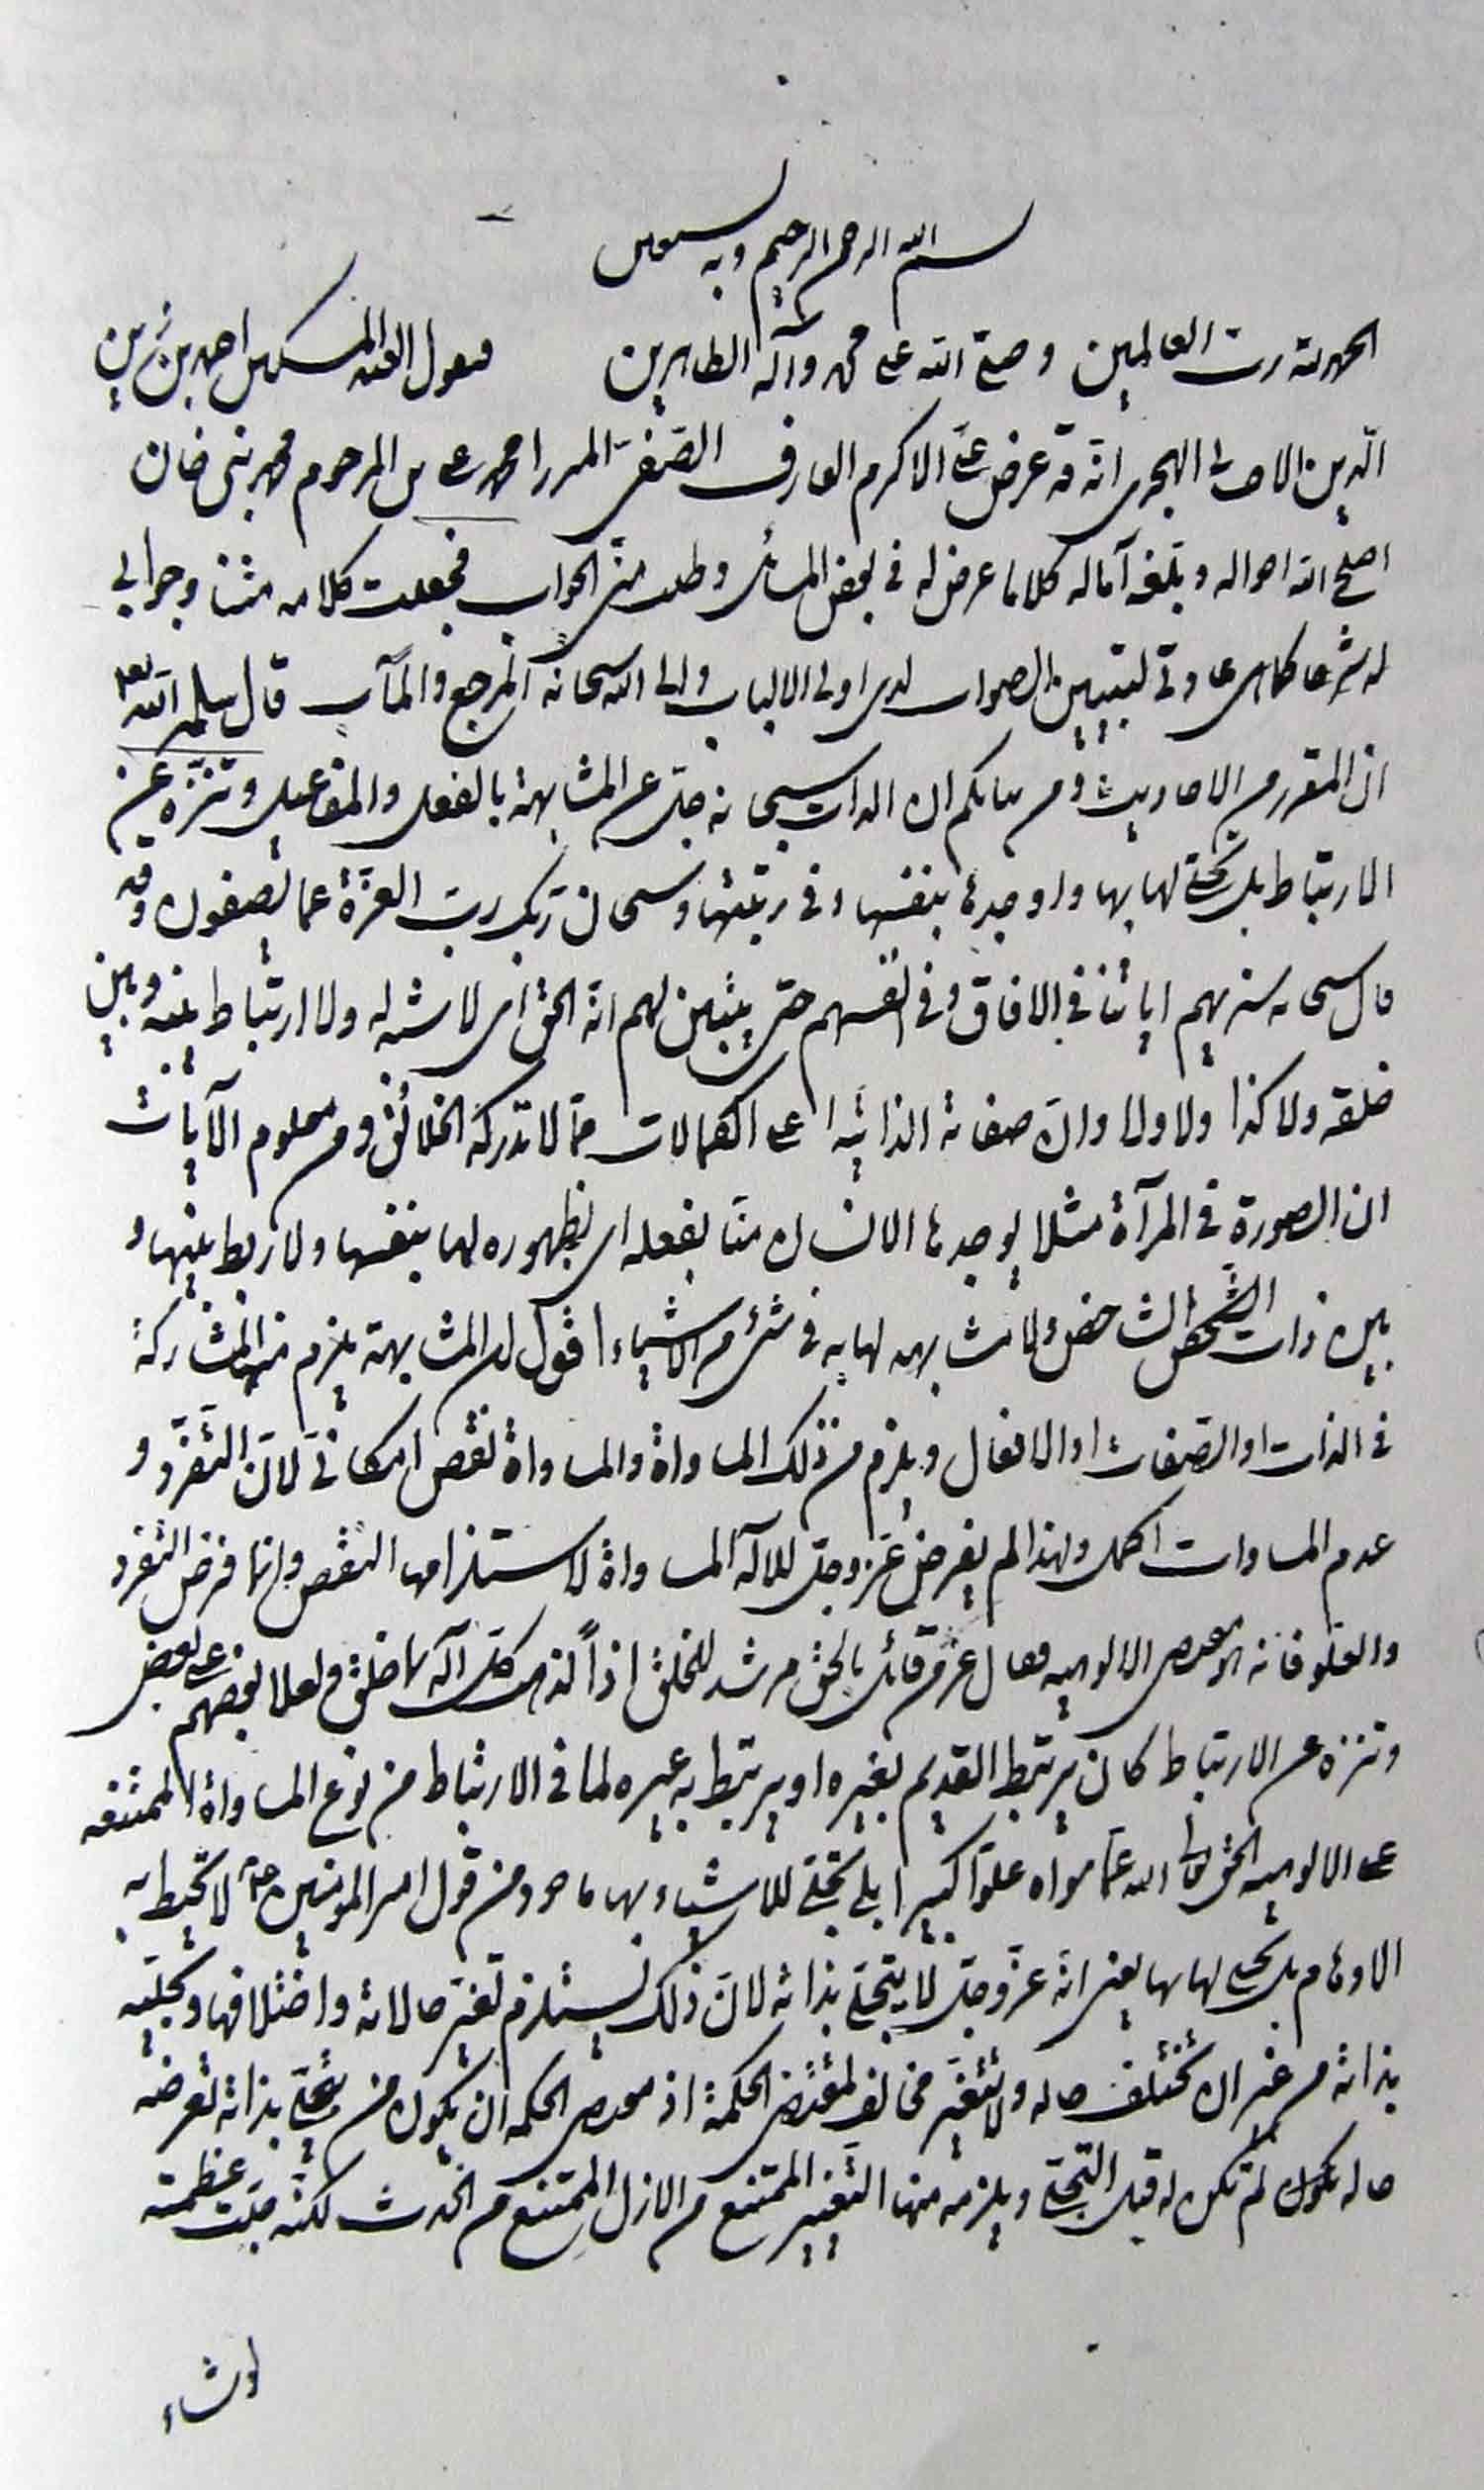 بسم الله الرحمن الرحيم وبه نستعين
الحمد لله رب العالمين وصلى الله على محمد وآله الطاهرين فيقول العبد المسكين احمد بن زين
الدين الاحسائي الهجري انه قد عرض علي الاكرم العارف الصفي الميرزا محمد علي بن المرحوم محمد نبي خان
اصلح الله احواله وبلغه آماله كلاما عرض له في بعض المسائل وطلب مني الجواب فجعلت كلامه متنا وجوابي
له شرحا كما هي عادتي لتبيين الصواب لدى اولي الالباب والى الله سبحانه المرجع والمآب قال سلمه الله تعالى
ان المقرر من الاحاديث ومن بياناتكم ان الذات سبحانه جل عن المشابهة بالفعل والمفاعيل وتنزه عن
الارتباط بل تجلى لها بها واوجدها بنفسها وفي رتبتها وسبحان ربك رب العزة عما يصفون وقد
قال سبحانه سنريهم اياتنا في الافاق وفي انفسهم حتى يتبين لهم انه الحق اي لا شبه له ولا ارتباط بينه وبين
خلقه ولا كذا ولا ولا وان صفاته الذاتية اعلى الكمالات مما لا تدركه الخلائق ومن معلوم الآيات
ان الصورة في المرآة مثلا يوجدها الانسان منا بفعله اي بظهوره لها بنفسها ولا ربط بينها و
بين ذات الشخص الشاخص ولا مشابهة لها به في شيء من الاشياء اقول ان المشابهة يلزم منها المشاركة
في الذات او الصفات او الافعال ويلزم من ذلك المساواة والمساواة نقص امكاني لان التفرد و
عدم المساوات اكمل ولهذا لم يفرض عز وجل للالٓه المساواة لاستلزامها النقص وانما فرض التفرد
والعلو فانه هو مقتضى الالوهية فقال عز من قائل بالحق مرشد للخلق اذاً لذهب كل آله بما خلق ولعلا بعضهم على بعض
وتنزه عن الارتباط كان يرتبط القديم بغيره او يرتبط به غيره لما في الارتباط من نوع المساواة الممتنعة
على الالوهية الحق تعالى الله عما سواه علوا كبيرا بلى تجلى للاشياء بها ماخوذ من قول امير المؤمنين لا تحيط به
الاوهام بل تجلى لها بها يعني انه عز وجل لا يتجلى بذاته لان ذلك يستلزم تغير حالاته واختلافها وتجليه
بذاته من غير ان تختلف حاله ولا تتغير مخالف لمقتضى الحكمة اذ مقتضى الحكمة ان يكون من يتجلى بذاته تعرضه
حاله يكون لم تكن له قبل التجلي ويلزمه منها التغيير الممتنع من الازل الممتنع من الحدث لكنه جلت عظمته